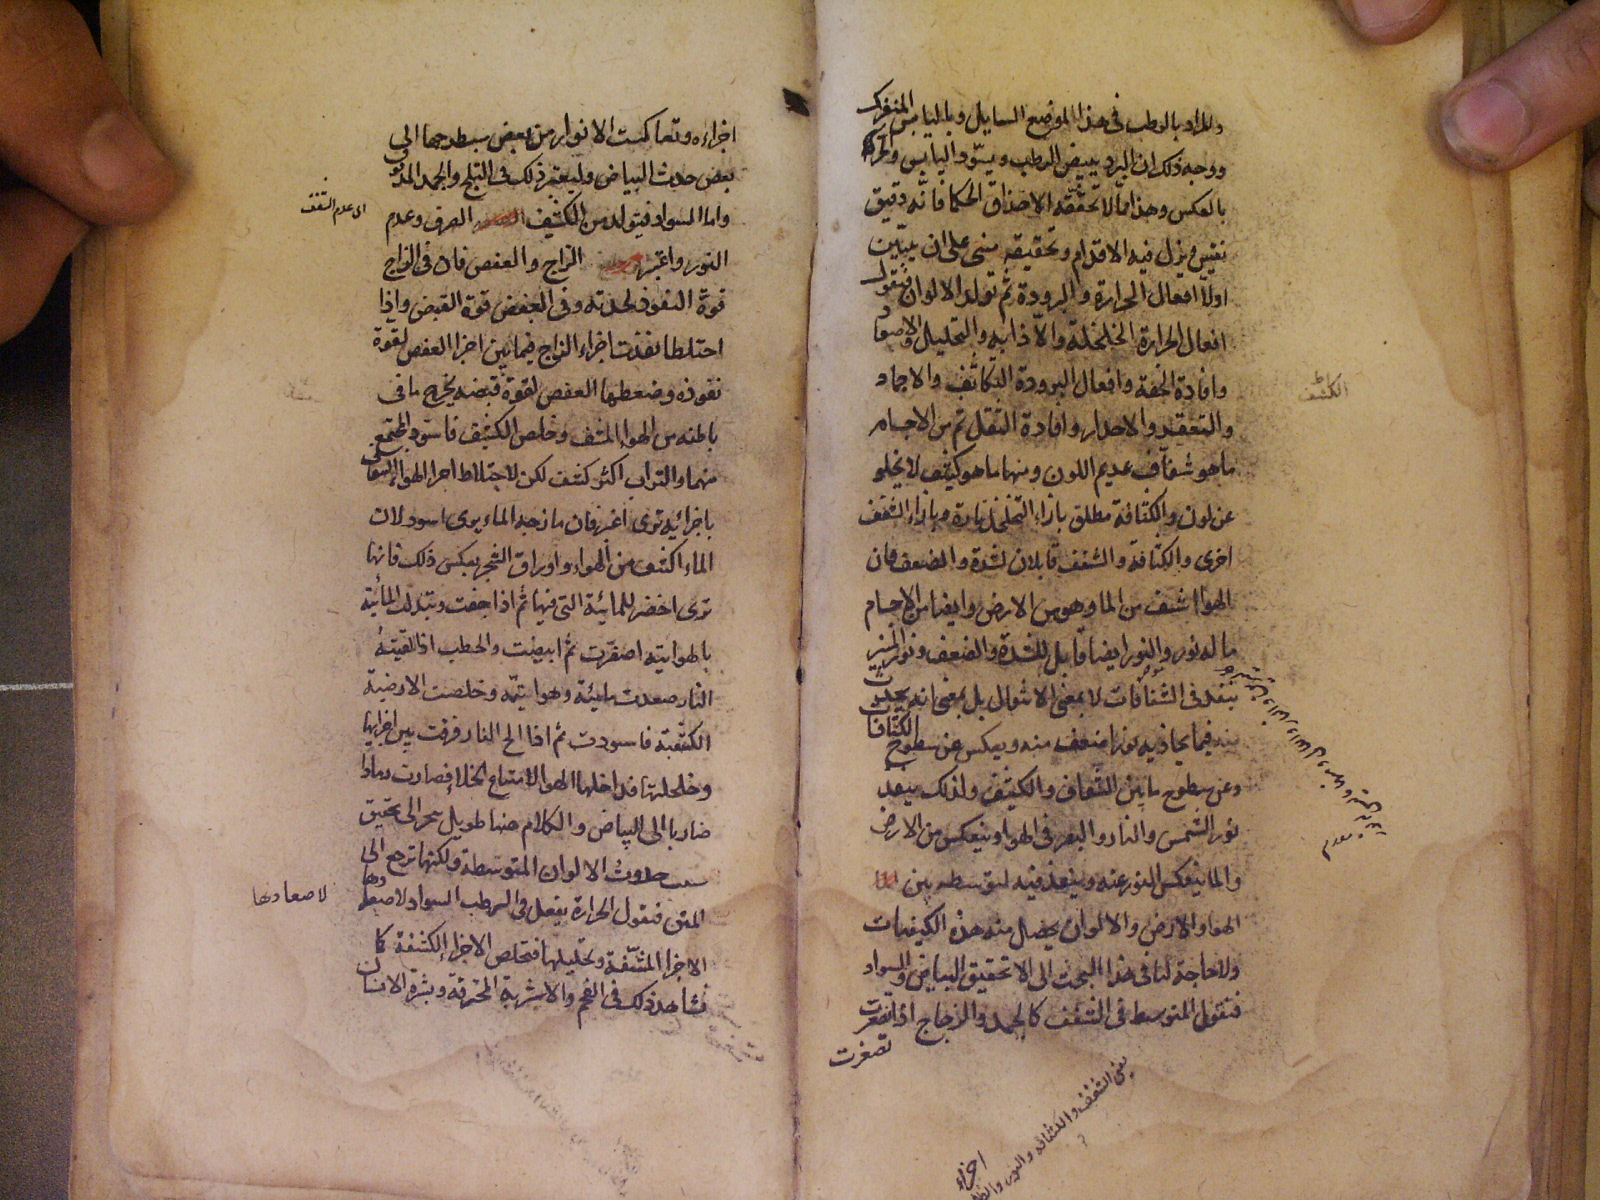 والمراد بالرطب فى هذا الموضع السايل وباليابس المتفرك
ووجه ذلك ان البرد يبيض الرطب ويسود اليابس والحر
بالعكس وهذا مما لا تحققه الا حذاق الحكما فانه دقيق
نفيس يزل فيه الاقدام وتحقيقه مبنى على ان يتبين
اولا افعال الحرارة والبرودة ثم تولد الالوان فنقول
افعال الحرارة الخلخلة والاذابه والتحليل والاصعاد
وافادة الخفة وافعال البرودة التكاثف والاجماد
والتعقيد والاحدار وافادة الثقل ثم من الاجسام
ماهو شفاف عديم اللون ومنها ماهو كثيف لا يخلو
عن لون والكثافة مطلق بازاء التخلخل تارة وبازاء الشفف
اخرى والكثافة والشفف قابلان لشدة والضعف فان
الهوا اشف من الما وهو من الارض وايضا من الاجسام
ما له نور والنور ايضا قابل للشدة والضعف ونور المنير
ينفذ فى الشفافات لا بمعنى الانتقال بل بمعنى انه يحدث
منه فيما يحاذيه نورا ضعف منه وينعكس عن سطوح الكثافات
وعن سطوح ما بين الشفاف والكثيف ولذلك ينفذ
نور الشمس والنار والبصر فى الهوا وينعكس من الارض
والما ينعكس النور عنه وينفذ فيه لتوسطه بين
الهوا والارض والالوان يحصل منه هذه الكيفيات
ولا حاجة لنا فى هذا البحث الى الا تحقيق البياض والسواد
فنقول المتوسط فى الشفف كالجمد والزجاج اذا تصغرت
تصغرت
يعنى الشفف والكثافة والنور
اجزاء
اجزاءه وتعاكست الانوار من بعض سطوحها الى
بعض حدث البياض وليعتبر ذلك فى الثلج والجمد المدقوق
واما السواد فيتولد من الكثيف الصرف وعدم
اى عدم الشفف
النور واعتبر الزاج والعفص فان فى الزاج
قوة النفوذ لحدته وفى العفص قوة القبض واذا
اختلطا نفذت اجزاء الزاج فيما بين اجزا العفص لقوة
نفوذه وضغطها العفص لقوة قبضه يخرج ما فى
باطنه من الهوا المشف وخلص الكثيف فاسود المجتمع
منهما والتراب اكثر كثف لكن لاختلاط اجزا الهوا الشفاف
باجزائيه ترى اغبر فان مازجه الماء يرى اسود لان
الماء اكثف من الهواء واوراق الشجر بعكس ذلك فانها
ترى اخضر للمائية التى فيها ثم اذا جفت وتبدلت المائية
بالهوايته اصفرت ثم ابيضت والحطب اذا لقيته
النار صعدت مائية وهوايته وخلصت الارضية
الكثيفة فاسودت ثم اذا الح النار فرقت بين اجزايها
وخلخلتها فداخلها الهوا لامتناع الخلاء فصارت رمادا
ضاربا الى البياض والكلام هنا طويل يجر الى تحقيق
سبب حدوث الالوان المتوسطة ولكنها ترجع الى
المتن فنقول الحرارة يفعل فى الرطب السواد لاصعادها
لاصعادها
الاجزا المشفة وتحليلها فتخلص الاجزا الكثيفة كما
نشاهد ذلك فى الفحم والاشربة المحترقة وبشرة الانسان